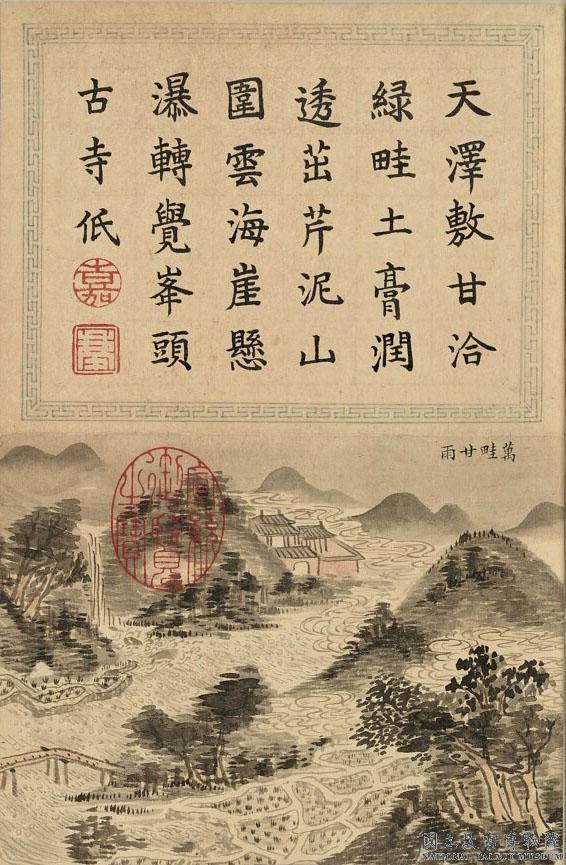 天澤敷甘洽
緑畦土膏潤
透茁芹泥山
圍雲海崖懸
瀑轉覺峯頭
古寺低
嘉
慶
萬畦甘雨
宣統御覽之寶
國立故宮博物院
NATIONAL PALACE MUSEUM